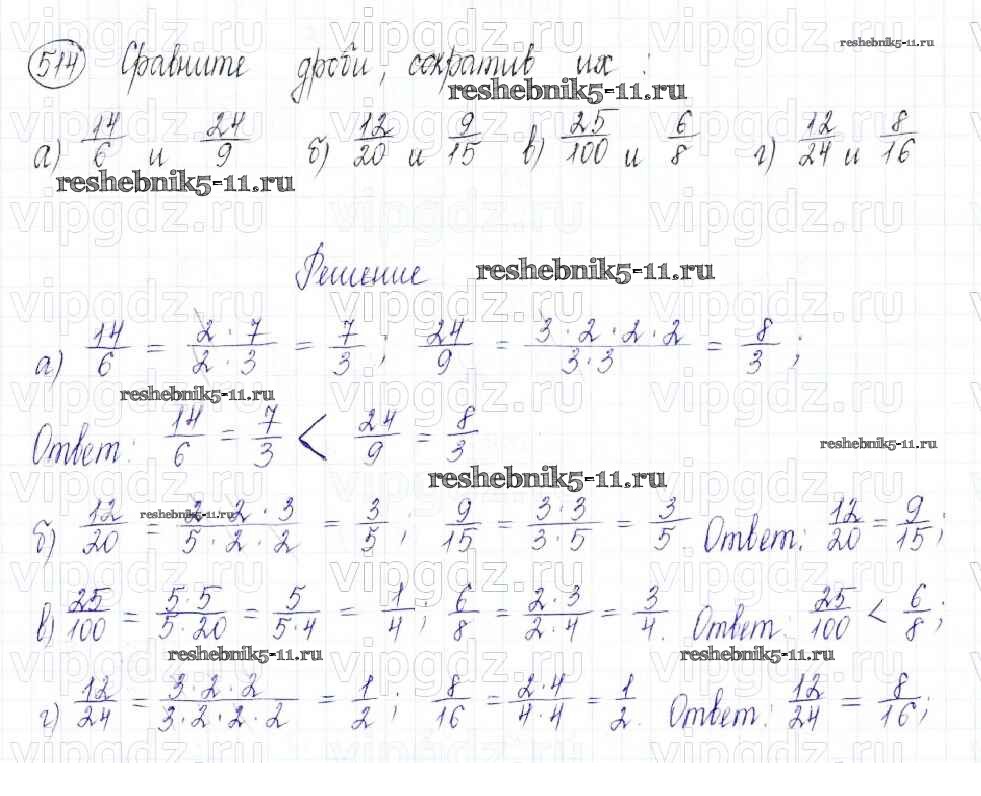 514 Сравните дроби, сократив их:
reshebnik5-11.ru
reshebnik5-11.ru
а) 14/6 и 24/9 б) 12/20 и 9/15 в) 25/100 и 6/8 г) 12/24 и 8/16
reshebnik5-11.ru
Решение reshebnik5-11.ru
а) 14/6 = 2·7/2·3 = 7/3; 24/9 = 3·2·2·2/3·3 = 8/3;
reshebnik5-11.ru
Ответ: 14/6 = 7/3 < 24/9 = 8/3
reshebnik5-11.ru
reshebnik5-11.ru
reshebnik5-11.ru
б) 12/20 = 2·2·3/5·2·2 = 3/5; 9/15 = 3·3/3·5 = 3/5. Ответ: 12/20 = 9/15;
в) 25/100 = 5·5/5·20 = 5/5·4 = 1/4; 6/8 = 2·3/2·4 = 3/4. Ответ: 25/100 < 6/8;
reshebnik5-11.ru reshebnik5-11.ru
г) 12/24 = 3·2·2/3·2·2·2 = 1/2; 8/16 = 2·4/4·4 = 1/2. Ответ: 12/24 = 8/16;
vipgdz.ru vipgdz.ru vipgdz.ru